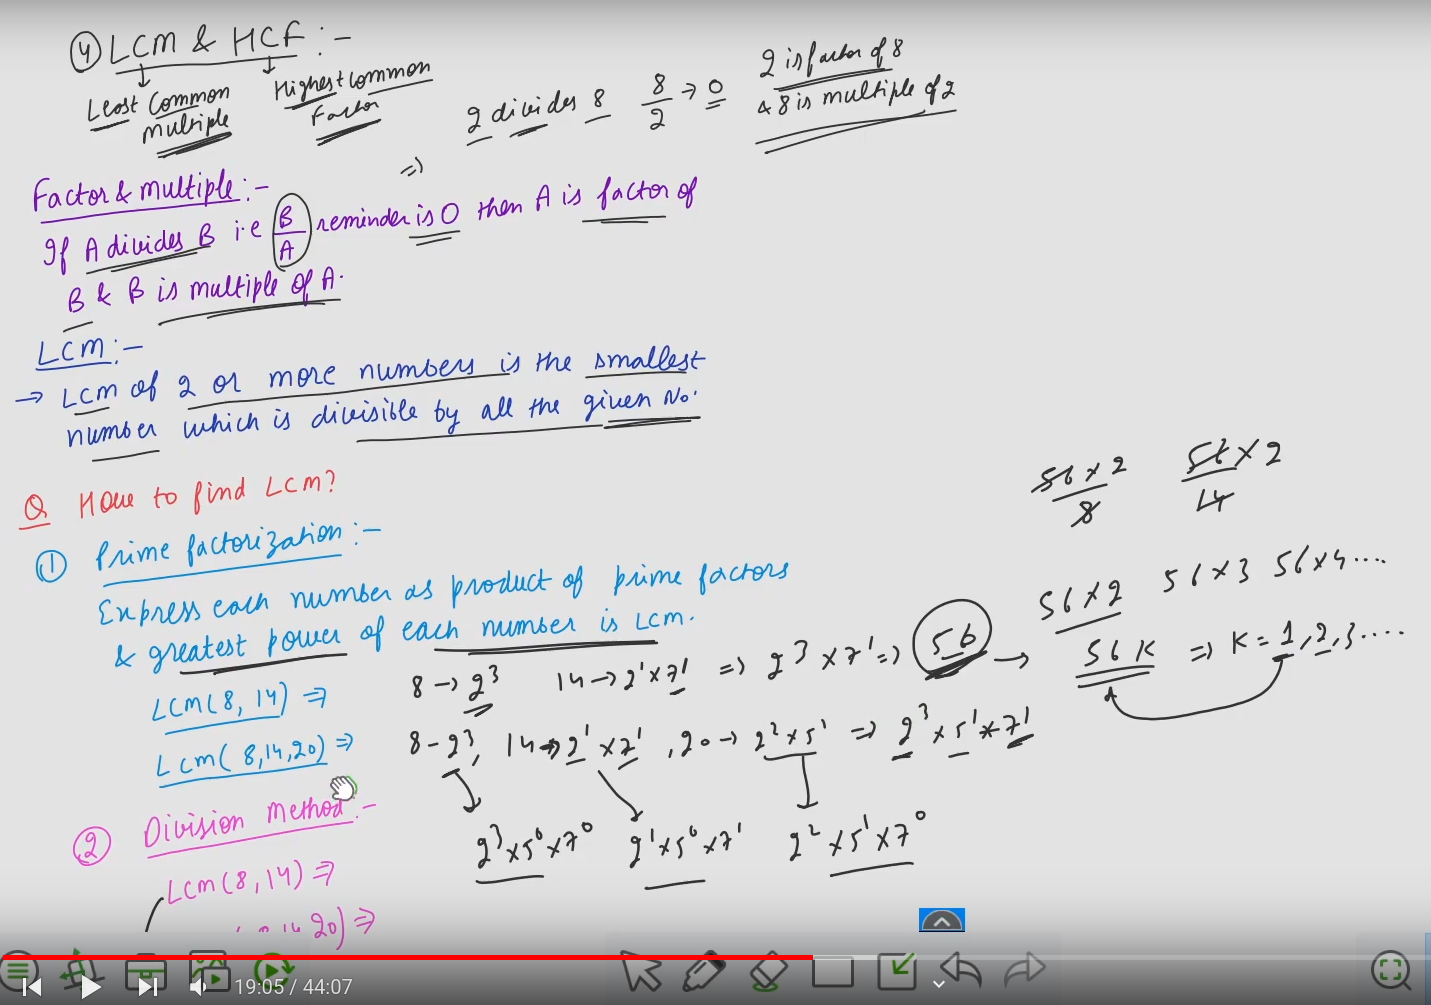 ④ LCM & HCF :-
Least Common Multiple
Highest Common Factor
2 divides 8
8/2 → 0
2 is factor of 8
& 8 is multiple of 2
=>
Factor & multiple :-
If A divides B i.e B/A reminder is 0 then A is factor of
B & B is multiple of A.
LCM :-
→ LCM of 2 or more numbers is the smallest
number which is divisible by all the given No.
Q How to find LCM?
① Prime factorization :-
Express each number as product of prime factors
& greatest power of each number is LCM.
56 × 2 / 8
56 × 2 / 14
56 × 2 56 × 3 56 × 4 ....
LCM(8, 14) => 8 → 2³ 14 → 2¹ × 7¹ => 2³ × 7¹ => 56 → 56 K => K = 1, 2, 3 ....
LCM(8, 14, 20) => 8 - 2³, 14 → 2¹ × 7¹, 20 → 2² × 5¹ => 2³ × 5¹ × 7¹
2³ × 5⁰ × 7⁰ 2¹ × 5⁰ × 7¹ 2² × 5¹ × 7⁰
② Division Method :-
LCM(8, 14) =>
8, 14 20) =>
19:05 / 44:07